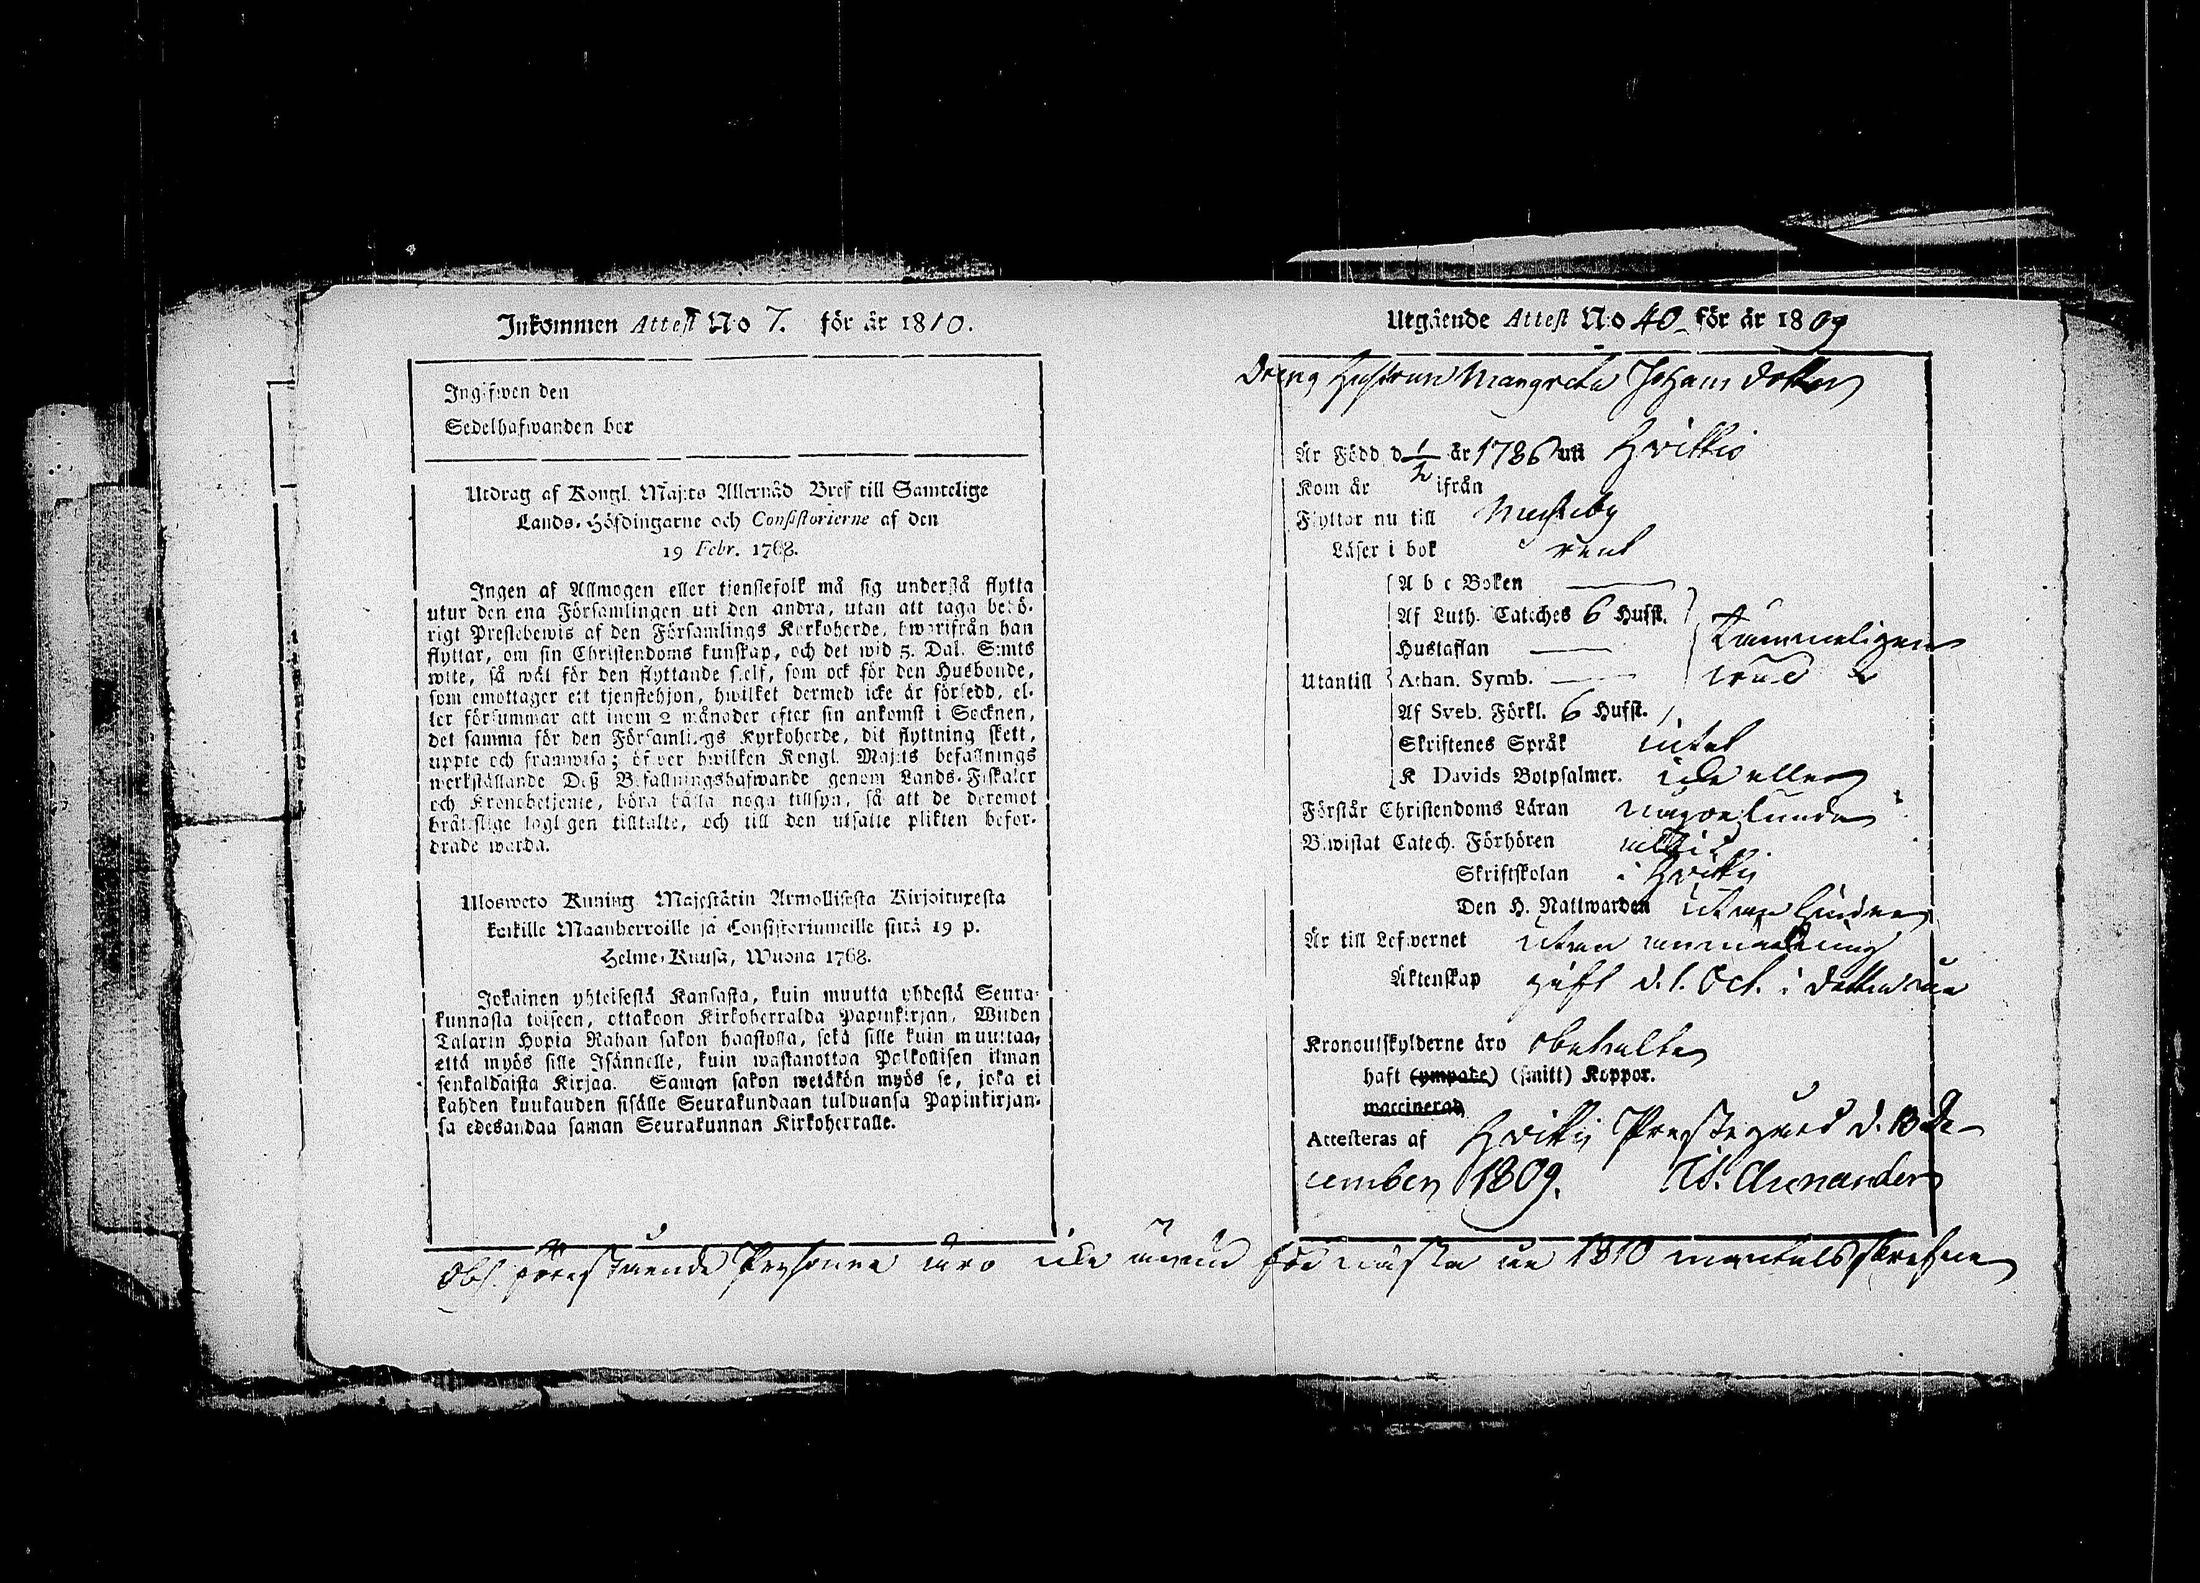 Inkommen Attest No 7. för år 1810.
Ingifwen den
Sedelhafwanden bor
Utdrag af Kongl. Maj:ts Allernåd Bref till Samtelige
Lands-Höfdingarne och Consistorierne af den
19 Febr. 1768.
Ingen af Allmogen eller tjenstefolk må sig understå flytta
utur den ena Församlingen uti den andra, utan att taga behö-
rigt Prestebewis af den Församlings Kyrkoherde, hwarifrån han
flyttar, om sin Christendoms kunskap, och det wid 5. Dal. S:mts
wite, så wäl för den flyttande sielf, som ock för den Husbonde,
som emottager ett tjenstehjon, hwilket dermed icke är försedd, el-
ler försummar att inom 2 månader efter sin ankomst i Socknen,
det samma för den Församlings Kyrkoherde, dit flyttning skett,
uppte och framwisa; öfwer hwilken Kongl. Maj:ts befallnings
werkställande Deß Befallningshafwande genom Lands-Fiskaler
och Kronobetjente, böra hålla noga tillsyn, så att de deremot
bråtslige lagligen tilltalte, och till den utsatte plikten befor-
drade warda.
Ulosweto Kuning Majestätin Armollisesta Kirjoituxesta
kaikille Maanherroille ja Consistoriumeille siitä 19 p.
Helme-Kuusa, Wuona 1768.
Jokainen yhteisestä Kansasta, kuin muutta yhdestä Seura-
kunnasta toiseen, ottakoon Kirkoherralda Papinkirjan, Wiiden
Talarin Hopia Rahan sakon haastolla, sekä sille kuin muuttaa,
että myös sille Isännelle, kuin wastanottaa Palkollisen ilman
senkaldaista Kirjaa. Saman sakon wetäkön myös se, joka ei
kahden kuukauden sisälle Seurakundaan tulduansa Papinkirjan-
sa edesandaa saman Seurakunnan Kirkoherralle.
Utgående Attest No 40 för år 1809
Dreng Hustrun Margreta Johans dotter
Är Född d 1/2 år 1786 uti Hvittis
Kom år ifrån
Flyttar nu till
Läser i bok rent
A b c Boken
Af Luth. Cateches 6 Hufst.
Hustaflan
Utantill Athan. Symb.
Af Sveb. Förkl. 6 Hufst.
Skriftenes Språk intet
K Davids Botpsalmer. icke eller
Förstår Christendoms Läran någorlunda
Bewistat Catech. Förhören
Skriftskolan i Hvittis
Den H. Nattwarden utan hinder
Är till Lefwernet utan anmärkning
Äktenskap gift d. 1. Oct. i detta år
Kronoutskylderne äro obetalte
haft (ympade) (smitt) Koppor.
waccinerad
Attesteras af Hvittis Prestegård d. 18 De-
cember 1809.
Obs. förestående Personer äro icke ännu för nästa år 1810 mantalsskrefne